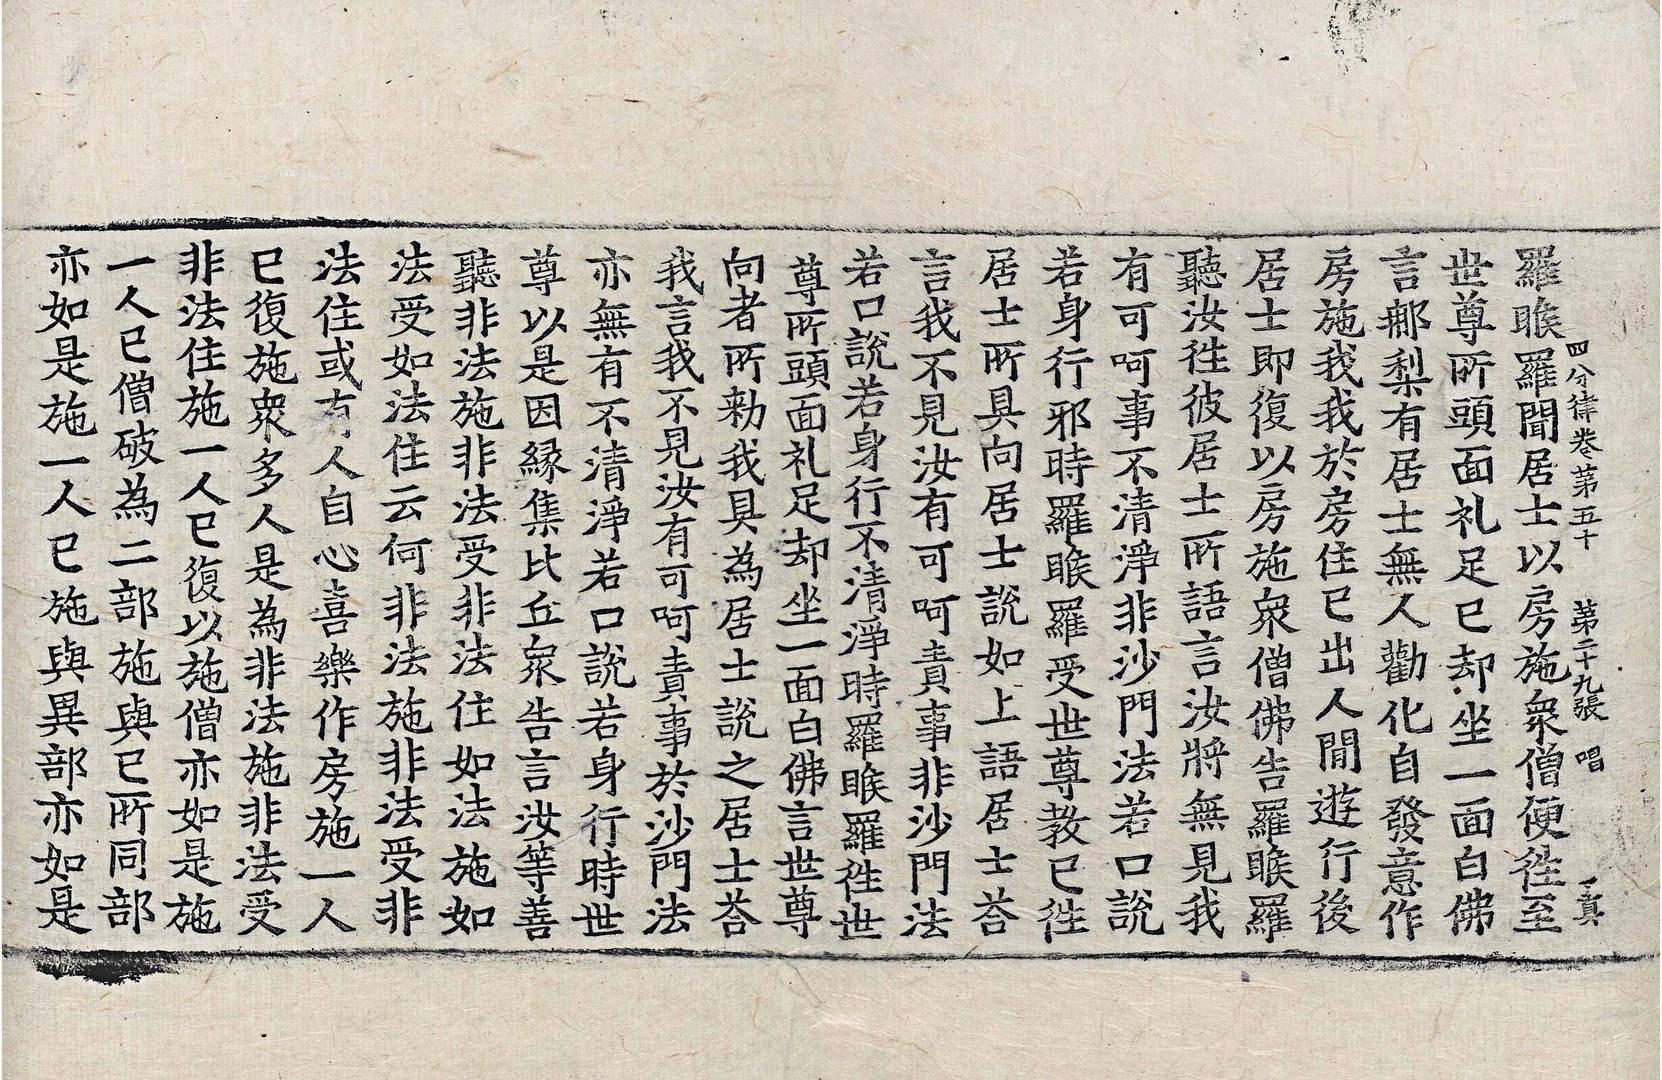 四分律卷第五十 第二十九張 唱
羅睺羅聞居士以房施衆僧便徃至
世尊所頭面礼足已却坐一面白佛
言鄁梨有居士無人勸化自發意作
房施我我於房住已出人閒遊行後
居士即復以房施衆僧佛告羅睺羅
聽汝徃彼居士所語言汝將無見我
有可呵事不清淨非沙門法若口說
若身行邪時羅睺羅受世尊教已徃
居士所具向居士說如上語居士荅
言我不見汝有可呵責事非沙門法
若口說若身行不清淨時羅睺羅徃世
尊所頭面礼足却坐一面白佛言世尊
向者所勑我具為居士說之居士荅
我言我不見汝有可呵責事於沙門法
亦無有不清淨若口說若身行時世
尊以是因緣集比丘衆告言汝等善
聽非法施非法受非法住如法施如
法受如法住云何非法施非法受非
法住或有人自心喜樂作房施一人
已復施衆多人是為非法施非法受
非法住施一人已復以施僧亦如是施
一人已僧破為二部施與已所同部
亦如是施一人已施與異部亦如是